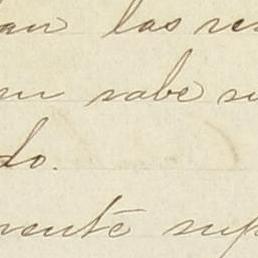 an las res
en sabe su
do.
mente sup